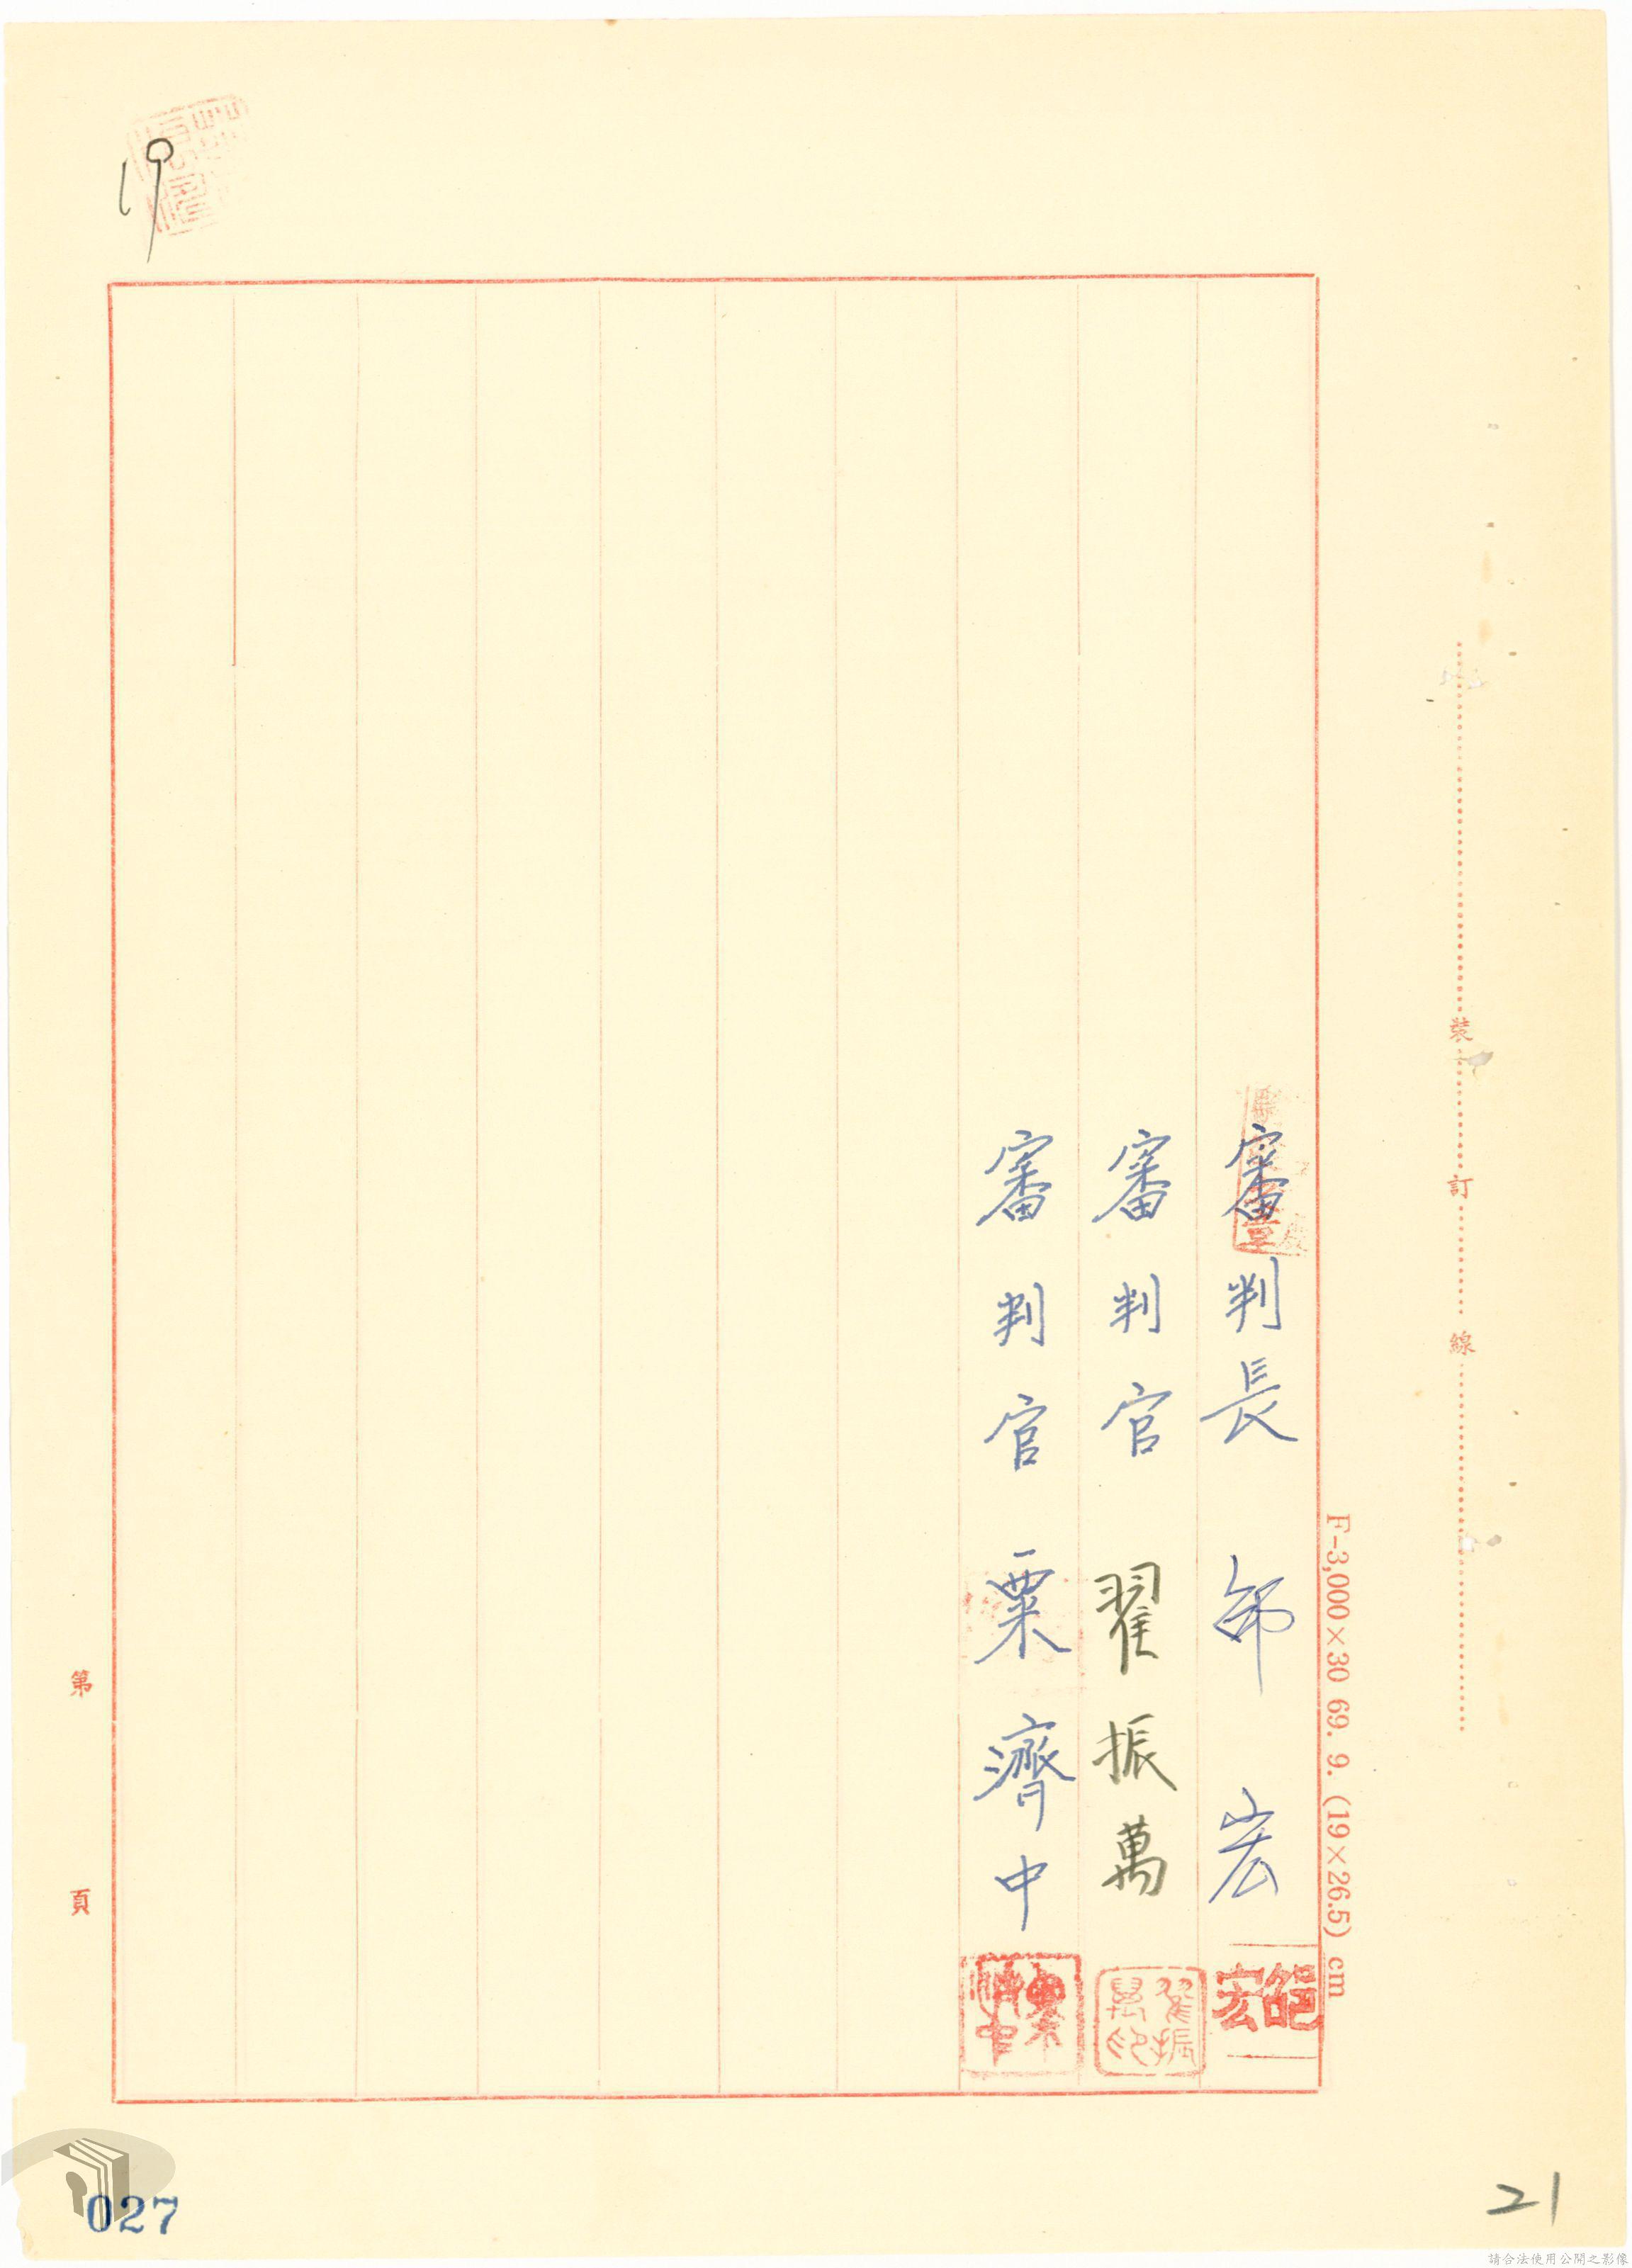 19
裝
訂
線
F-3,000×30 69. 9. (19×26.5) cm
審判長 邰宏
邰宏
審判官 翟振萬
翟振萬印
審判官 粟濟中
粟濟中
第 頁
027
21
請合法使用公開之影像